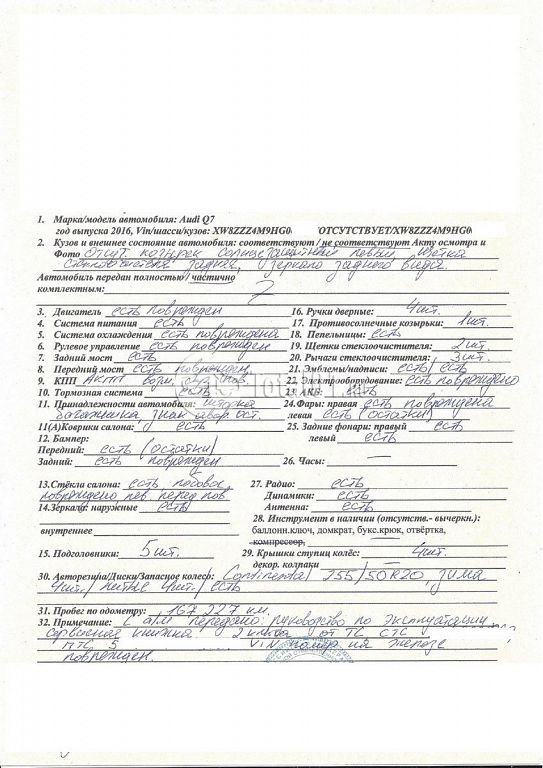 1. Марка/модель автомобиля: Audi Q7
год выпуска 2016, Vin/шасси/кузов: XW8ZZZ4M9HG0 'ОТСУТСТВУЕТ/XW8ZZZ4M9HG0
2. Кузов и внешнее состояние автомобиля: соответствуют / не соответствуют Акту осмотра и
Фото Отсут. козырек солнцезащитный левый, щетка
стеклоочистителя задней, зеркало заднего вида.
Автомобиль передан полностью / частично
комплектным:
3. Двигатель есть поврежден 16. Ручки дверные: 4шт.
4. Система питания есть 17. Противосолнечные козырьки: 1шт.
5. Система охлаждения есть повреждена 18. Пепельницы: есть
6. Рулевое управление есть поврежден 19. Щетки стеклоочистителя: 2шт.
7. Задний мост есть 20. Рычаги стеклоочистителя: 3шт.
8. Передний мост есть поврежден. 21. Эмблемы/надписи: есть/есть
9. КПП АКПП 22. Электрооборудование: есть повреждено
10. Тормозная система есть 23. АКБ: 1шт.
11. Принадлежности автомобиля: шторка 24.Фары: правая есть повреждена
багажника знак авар. ост. левая есть (остатки)
11(А)Коврики салона: есть 25. Задние фонари: правый есть
12. Бампер: левый есть
Передний: есть (остатки)
Задний: есть поврежден 26. Часы: —
13.Стёкла салона: есть лобовое 27. Радио: есть
повреждено лев. перед. пов. Динамики: есть
14.Зеркала: наружные есть Антенна: есть
28. Инструмент в наличии (отсутств.- вычеркн.):
внутреннее баллонн.ключ, домкрат, букс.крюк, отвёртка,
компрессор,
15. Подголовники: 5шт. 29. Крышки ступиц колёс: 4шт.
декор. колпаки —
30. Авторезина/Диски/Запасное колесо: Continental 255/50R20, зима
4шт./ литые 4шт./ есть
31. Пробег по одометру: 167 227 км.
32. Примечание: С а/м передано: руководство по эксплуатации
сервисная книжка 2 ключа от ТС СТС
ПТС VIN номер на железе
поврежден.